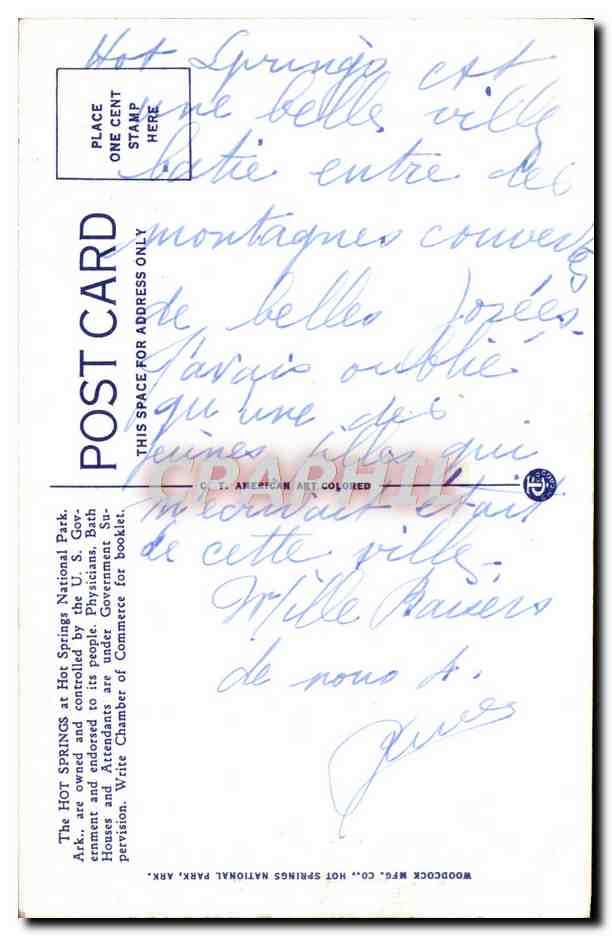 Hot Springs est
une belle ville
batie entre des
montagnes couvertes
de belles
J'avais oublié
qu'une des
jeunes filles qui
m'écrivait était
de cette ville.
Mille Baisers
de nous 4.
PLACE
ONE CENT
STAMP
HERE
POST CARD
THIS SPACE FOR ADDRESS ONLY
C. T. AMERICAN ART COLORED
The HOT SPRINGS at Hot Springs National Park,
Ark., are owned and controlled by the U. S. Gov-
ernment and endorsed to its people. Physicians, Bath
Houses and Attendants are under Government Su-
pervision. Write Chamber of Commerce for booklet.
WOODCOCK MFG. CO., HOT SPRINGS NATIONAL PARK, ARK.